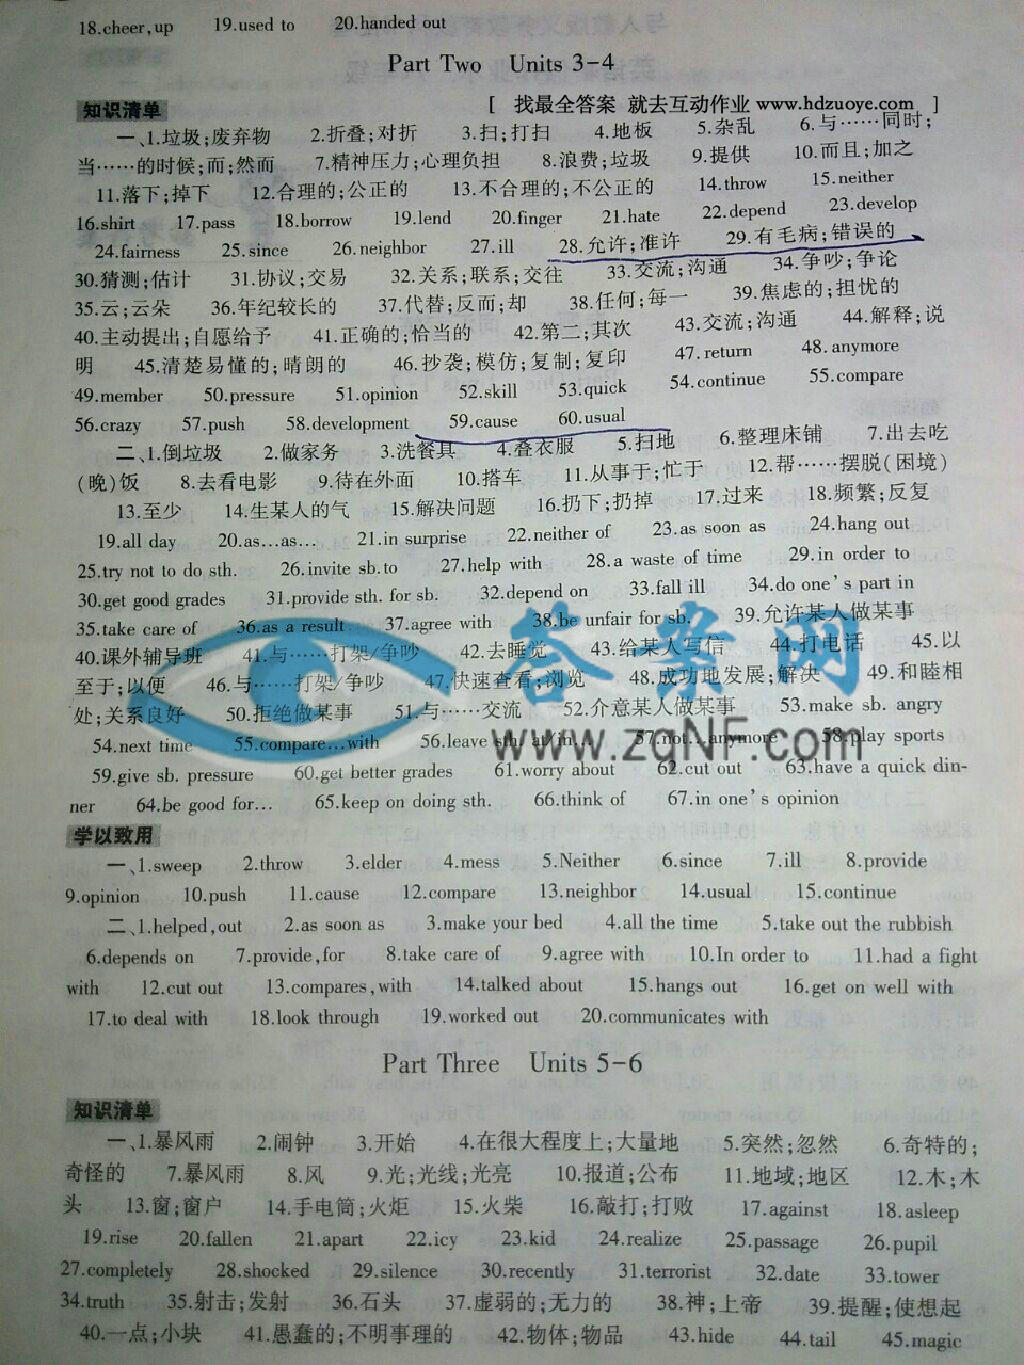 18.cheer,up 19.used to 20.handed out
Part Two Units 3-4
知识清单 [ 找最全答案 就去互动作业 www.hdzuoye.com ]
一、1.垃圾;废弃物 2.折叠;对折 3.扫;打扫 4.地板 5.杂乱 6.与……同时;
当……的时候;而;然而 7.精神压力;心理负担 8.浪费;垃圾 9.提供 10.而且;加之
11.落下;掉下 12.合理的;公正的 13.不合理的;不公正的 14.throw 15.neither
16.shirt 17.pass 18.borrow 19.lend 20.finger 21.hate 22.depend 23.develop
24.fairness 25.since 26.neighbor 27.ill 28.允许;准许 29.有毛病;错误的
30.猜测;估计 31.协议;交易 32.关系;联系;交往 33.交流;沟通 34.争吵;争论
35.云;云朵 36.年纪较长的 37.代替;反而;却 38.任何;每一 39.焦虑的;担忧的
40.主动提出;自愿给予 41.正确的;恰当的 42.第二;其次 43.交流;沟通 44.解释;说
明 45.清楚易懂的;晴朗的 46.抄袭;模仿;复制;复印 47.return 48.anymore
49.member 50.pressure 51.opinion 52.skill 53.quick 54.continue 55.compare
56.crazy 57.push 58.development 59.cause 60.usual
二、1.倒垃圾 2.做家务 3.洗餐具 4.叠衣服 5.扫地 6.整理床铺 7.出去吃
(晚)饭 8.去看电影 9.待在外面 10.搭车 11.从事于;忙于 12.帮……摆脱(困境)
13.至少 14.生某人的气 15.解决问题 16.扔下;扔掉 17.过来 18.频繁;反复
19.all day 20.as...as... 21.in surprise 22.neither of 23.as soon as 24.hang out
25.try not to do sth. 26.invite sb.to 27.help with 28.a waste of time 29.in order to
30.get good grades 31.provide sth. for sb. 32.depend on 33.fall ill 34.do one's part in
35.take care of 36.as a result 37.agree with 38.be unfair for sb. 39.允许某人做某事
40.课外辅导班 41.与……打架/争吵 42.去睡觉 43.给某人写信 44.打电话 45.以
至于;以便 46.与……打架/争吵 47.快速查看;浏览 48.成功地发展;解决 49.和睦相
处;关系良好 50.拒绝做某事 51.与……交流 52.介意某人做某事 53.make sb. angry
54.next time 55.compare...with 56.leave sth. at/in... 57.not...anymore 58.play sports
59.give sb. pressure 60.get better grades 61.worry about 62.cut out 63.have a quick din-
ner 64.be good for... 65.keep on doing sth. 66.think of 67.in one's opinion
答案网
www.zqNF.com
学以致用
一、1.sweep 2.throw 3.elder 4.mess 5.Neither 6.since 7.ill 8.provide
9.opinion 10.push 11.cause 12.compare 13.neighbor 14.usual 15.continue
二、1.helped,out 2.as soon as 3.make your bed 4.all the time 5.take out the rubbish
6.depends on 7.provide,for 8.take care of 9.agree with 10.In order to 11.had a fight
with 12.cut out 13.compares,with 14.talked about 15.hangs out 16.get on well with
17.to deal with 18.look through 19.worked out 20.communicates with
Part Three Units 5-6
知识清单
一、1.暴风雨 2.闹钟 3.开始 4.在很大程度上;大量地 5.突然;忽然 6.奇特的;
奇怪的 7.暴风雨 8.风 9.光;光线;光亮 10.报道;公布 11.地域;地区 12.木;木
头 13.窗;窗户 14.手电筒;火炬 15.火柴 16.敲打;打败 17.against 18.asleep
19.rise 20.fallen 21.apart 22.icy 23.kid 24.realize 25.passage 26.pupil
27.completely 28.shocked 29.silence 30.recently 31.terrorist 32.date 33.tower
34.truth 35.射击;发射 36.石头 37.虚弱的;无力的 38.神;上帝 39.提醒;使想起
40.一点;小块 41.愚蠢的;不明事理的 42.物体;物品 43.hide 44.tail 45.magic